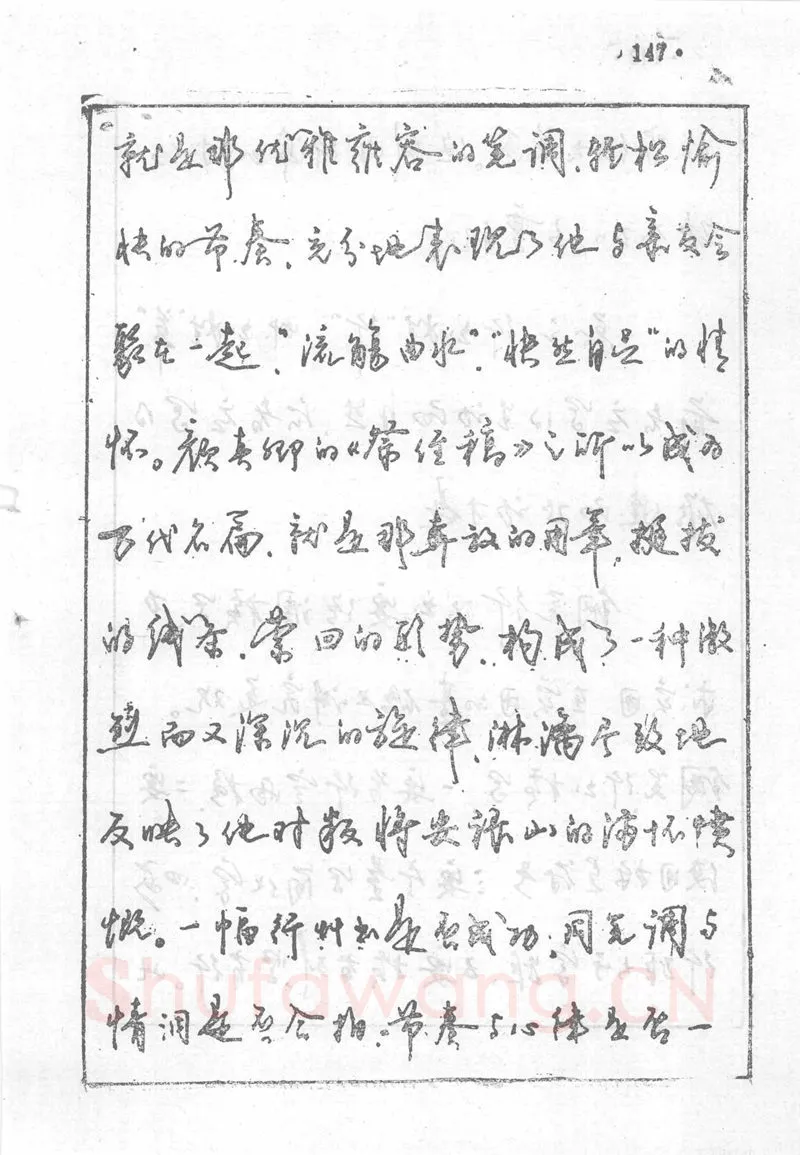 ·147·
就是那优雅雍容的笔调、轻松愉
快的节奏、充分地表现了他与亲友会
聚在一起,“流觞曲水”、“快然自足”的情
怀。颜真卿的《祭侄稿》之所以成为
万代名篇、就是那奔放的用笔,挺拔
的线条、萦回的形势、构成了一种激
越而又深沉的旋律,淋漓尽致地
反映了他对叛将安禄山的满怀愤
慨。一幅行草书是否成功,同笔调与
情调是否合拍、节奏与心律是否一
Shufawang.CN